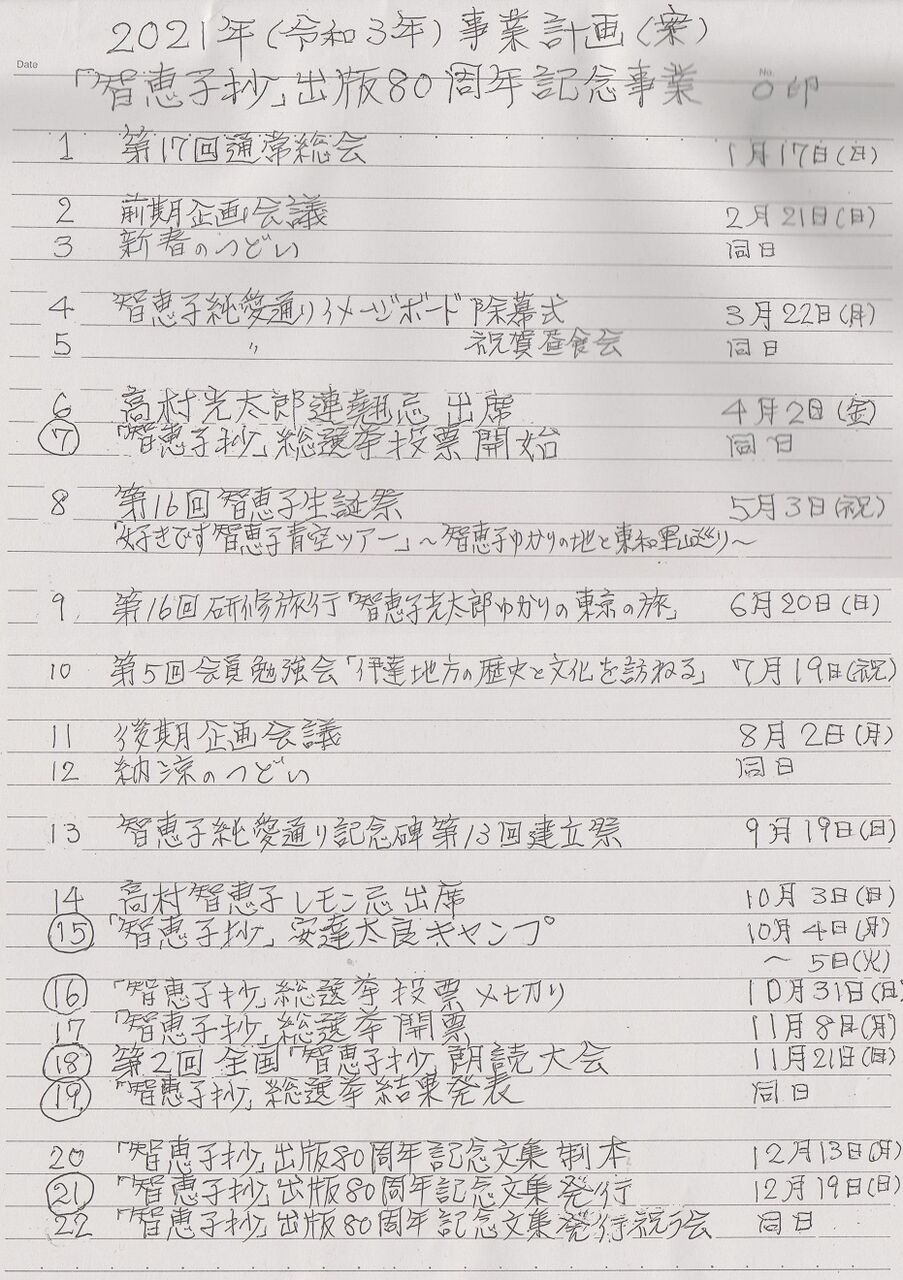 2021年(令和3年)事業計画(案)
Date
「智恵子抄」出版80周年記念事業 No. ○印
1 第17回通常総会 1月17日(日)
2 前期企画会議 2月21日(日)
3 新春のつどい 同日
4 智恵子純愛通りイメージボード除幕式 3月22日(月)
5 〃 祝賀昼食会 同日
6 高村光太郎連翹忌出席 4月2日(金)
⑦ 「智恵子抄」総選挙投票開始 同日
8 第16回智恵子生誕祭 5月3日(祝)
「好きです智恵子青空ツアー」〜智恵子ゆかりの地と東和里山巡り〜
9 第16回研修旅行「智恵子光太郎ゆかりの東京の旅」 6月20日(日)
10 第5回会員勉強会「伊達地方の歴史と文化を訪ねる」 7月19日(祝)
11 後期企画会議 8月2日(月)
12 納涼のつどい 同日
13 智恵子純愛通り記念碑第13回建立祭 9月19日(日)
14 高村智恵子レモン忌出席 10月3日(日)
⑮ 「智恵子抄」安達太良キャンプ 10月4日(月)
〜5日(火)
⑯ 「智恵子抄」総選挙投票〆切り 10月31日(日)
17 「智恵子抄」総選挙開票 11月8日(月)
⑱ 第2回全国「智恵子抄」朗読大会 11月21日(日)
⑲ 「智恵子抄」総選挙結果発表 同日
20 「智恵子抄」出版80周年記念文集製本 12月13日(月)
㉑ 「智恵子抄」出版80周年記念文集発行 12月19日(日)
22 「智恵子抄」出版80周年記念文集発行祝う会 同日